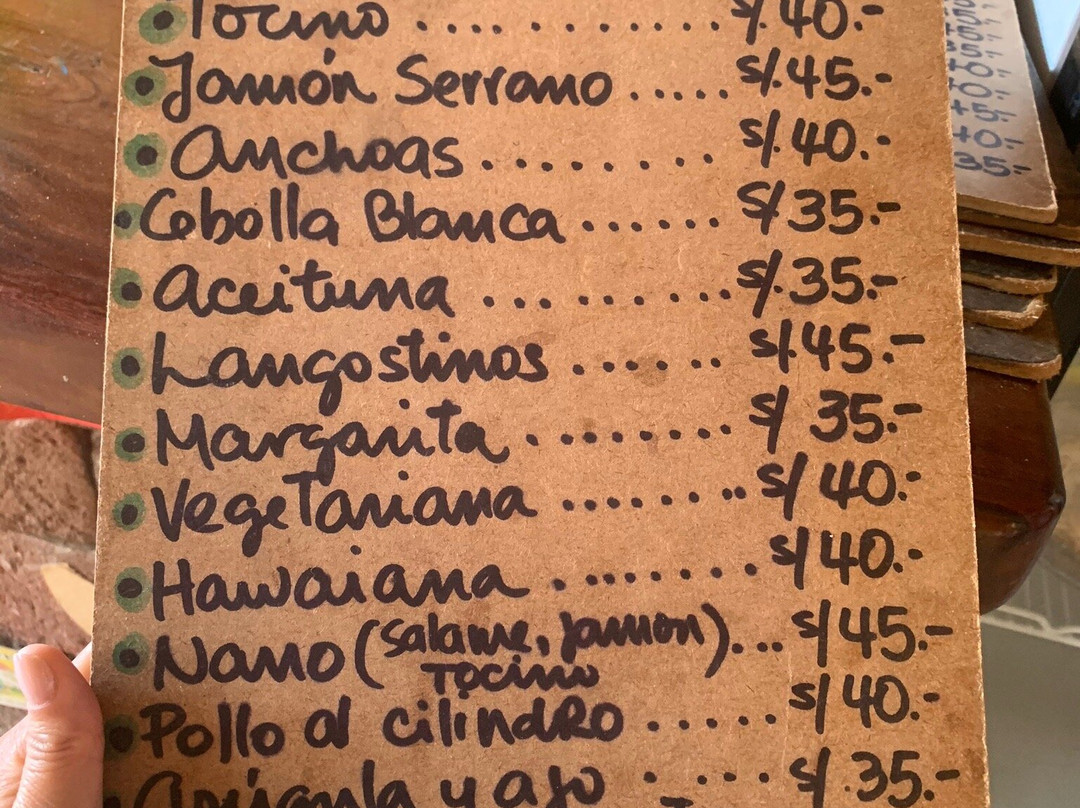 Tocino ............ S/. 40.-
Jamón Serrano ..... S/. 45.-
Anchoas ........ S/. 40.-
Cebolla Blanca ...... S/ 35.-
Aceituna .......... S/. 35.-
Langostinos ...... S/. 45.-
Margarita ......... S/ 35.-
Vegetariana ........ S/ 40.-
Hawaiana ......... S/ 40.-
Nano (Salame, jamon, Tocino) ... S/ 45.-
Pollo al cilindro ...... S/ 40.-
Arúgula y ajo ..... S/. 35.-
35.-